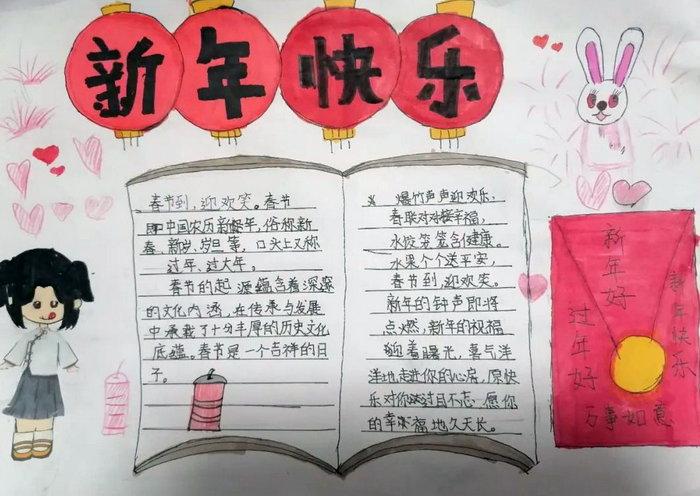 新年快乐
春节到,迎欢笑。春节
即中国农历新年,俗称新
春、新岁、岁旦等,口头上又称
过年、过大年。
春节的起源蕴含着深邃
的文化内涵,在传承与发展
中承载了十分丰厚的历史文化
底蕴。春节是一个吉祥的日
子。
爆竹声声迎欢乐,
春联对对接幸福,
水饺笼笼含健康。
水果个个送平安,
春节到,迎欢笑。
新年的钟声即将
点燃,新年的祝福
迎着曙光,喜气洋
洋地走进你的心房,愿快
乐对你过目不忘,愿你
的幸福地久天长。
新年好
过年好
新年快乐
万事如意